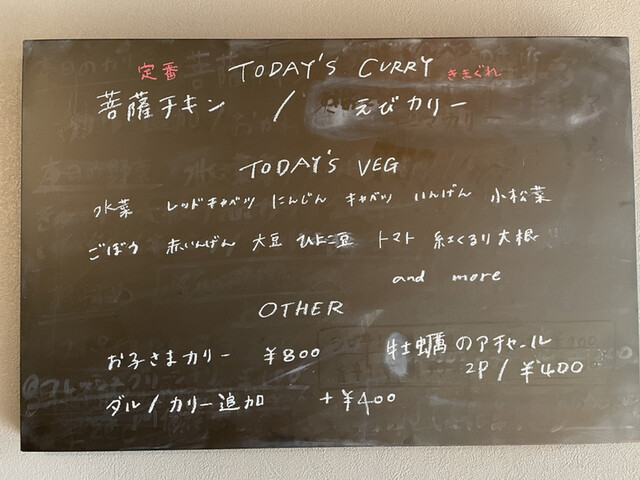 定番 TODAY'S CURRY ききぐれ
菩薩チキン / えびカリー
TODAY'S VEG
水菜 レッドキャベツ にんじん キャベツ いんげん 小松菜
ごぼう 赤いんげん 大豆 ひよこ豆 トマト 紅くるり大根
and more
OTHER
お子さまカリー ¥800
牡蠣のアチャール
2P/¥400
ダル/カリー追加 +¥400